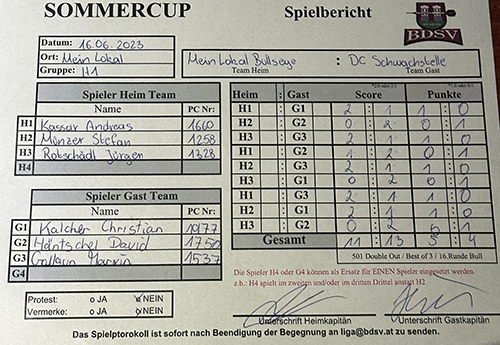 SOMMERCUP
Spielbericht
BDSV
Datum: 16.06.2023
Ort: Mein Lokal
Gruppe: H1
Mein Lokal Bullseye : DC Schwachstelle
Team Heim Team Gast
Spieler Heim Team
Name PC Nr:
H1 Kassar Andreas 1660
H2 Münzer Stefan 1258
H3 Rotschädl Jürgen 1328
H4
Spieler Gast Team
Name PC Nr:
G1 Kalcher Christian
G2 Häntschel David 1750
G3 1537
G4
Heim : Gast Score Punkte
H1 : G1 2 : 1 1 : 0
H2 : G2 0 : 2 0 : 1
H3 : G3 2 : 1 1 : 0
H1 : G2 1 : 2 0 : 1
H2 : G3 2 : 1 1 : 0
H3 : G1 0 : 2 0 : 1
H1 : G3 2 : 1 1 : 0
H2 : G1 2 : 1 1 : 0
H3 : G2 0 : 2 0 : 1
Gesamt 11 : 13 5 : 4
501 Double Out / Best of 3 / 16.Runde Bull
Die Spieler H4 oder G4 können als Ersatz für EINEN Spieler eingesetzt werden.
z.b.: H4 spielt im zweiten und/oder im dritten Drittel anstatt H2
Protest: o JA NEIN
Vermerke: o JA NEIN
Unterschrift Heimkapitän Unterschrift Gastkapitän
Das Spielptorokoll ist sofort nach Beendigung der Begegnung an liga@bdsv.at zu senden.